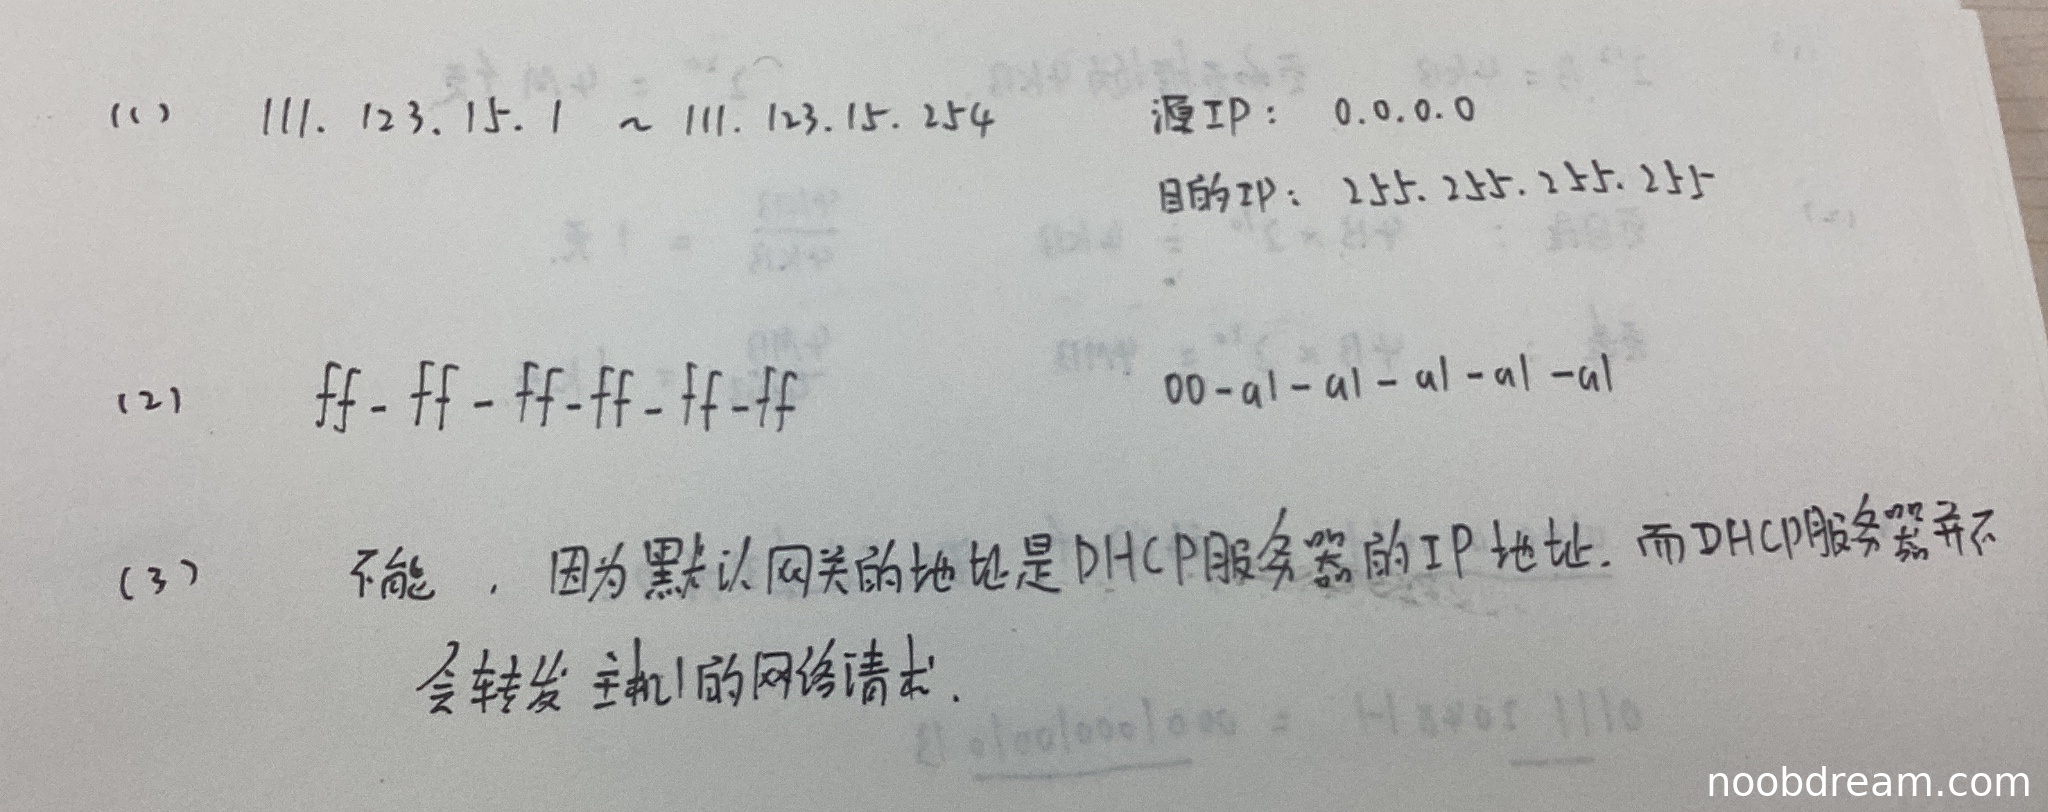 (1) 111.123.15.1 ~ 111.123.15.254 源IP: 0.0.0.0
目的IP: 255.255.255.255
(2) ff-ff-ff-ff-ff-ff 00-a1-a1-a1-a1-a1
(3) 不能，因为默认网关的地址是DHCP服务器的IP地址.而DHCP服务器并不
会转发主机1的网络请求.
noobdream.com